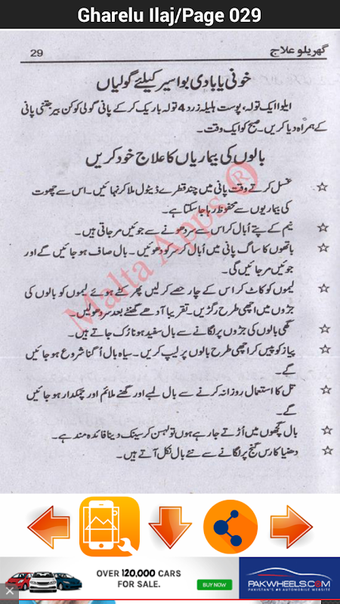 Gharelu Ilaj/Page 029
گھریلو علاج
29
خونی یا بادی بواسیر کیلئے گولیاں
ایلوا ایک تولہ، پوست ہلیلہ زرد 4 تولہ باریک کر کے پانی گولی کوکن بیر جتنی پانی
کے ہمراہ دیا کریں۔ صبح کو ایک وقت۔
بالوں کی بیماریاں کا علاج خود کریں
☆ غسل کرتے وقت پانی میں چند قطرے ڈیٹول ملا کر نہائیں۔ اس سے چھوت
کی بیماریوں سے محفوظ رہا جا سکتا ہے۔
☆ نیم کے پتے اُبال کر اس سے سر دھونے سے جوئیں مر جاتی ہیں۔
☆ باتھوں کا ساگ پانی میں اُبال کر سر کو دھوئیں۔ بال صاف ہو جائیں گے اور
جوئیں مر جائیں گی۔
☆ لیموں کو کاٹ کر اس کے چار حصے کر لیں پھر کٹے ہوئے لیموں کو بالوں کی
جڑوں میں اچھی طرح رگڑیں۔ تقریباً آدھے گھنٹے بعد سر دھولیں۔
☆ گھی بالوں کی جڑوں پر لگانے سے بال سفید ہونا رُک جاتے ہیں۔
☆ پیاز کو پیس کر اچھی طرح بالوں پر لیپ کریں۔ سیاہ بال اُگنا شروع ہو جائیں
گے۔
☆ تل کا استعمال روزانہ کرنے سے بال لمبے اور گھنے ملائم اور چمکدار ہو جائیں
گے۔
☆ بال گچھوں میں اُڑتے جا رہے ہوں تو لہسن کر سینک دینا فائدہ مند ہے۔
☆ دھنیا کا رس گنج پر لگانے سے نئے بال نکل آتے ہیں۔
Malta Apps ®
OVER 120,000 CARS
FOR SALE.
BUY NOW
PAKWHEELS.COM
PAKISTAN'S #1 AUTOMOBILE WEBSITE